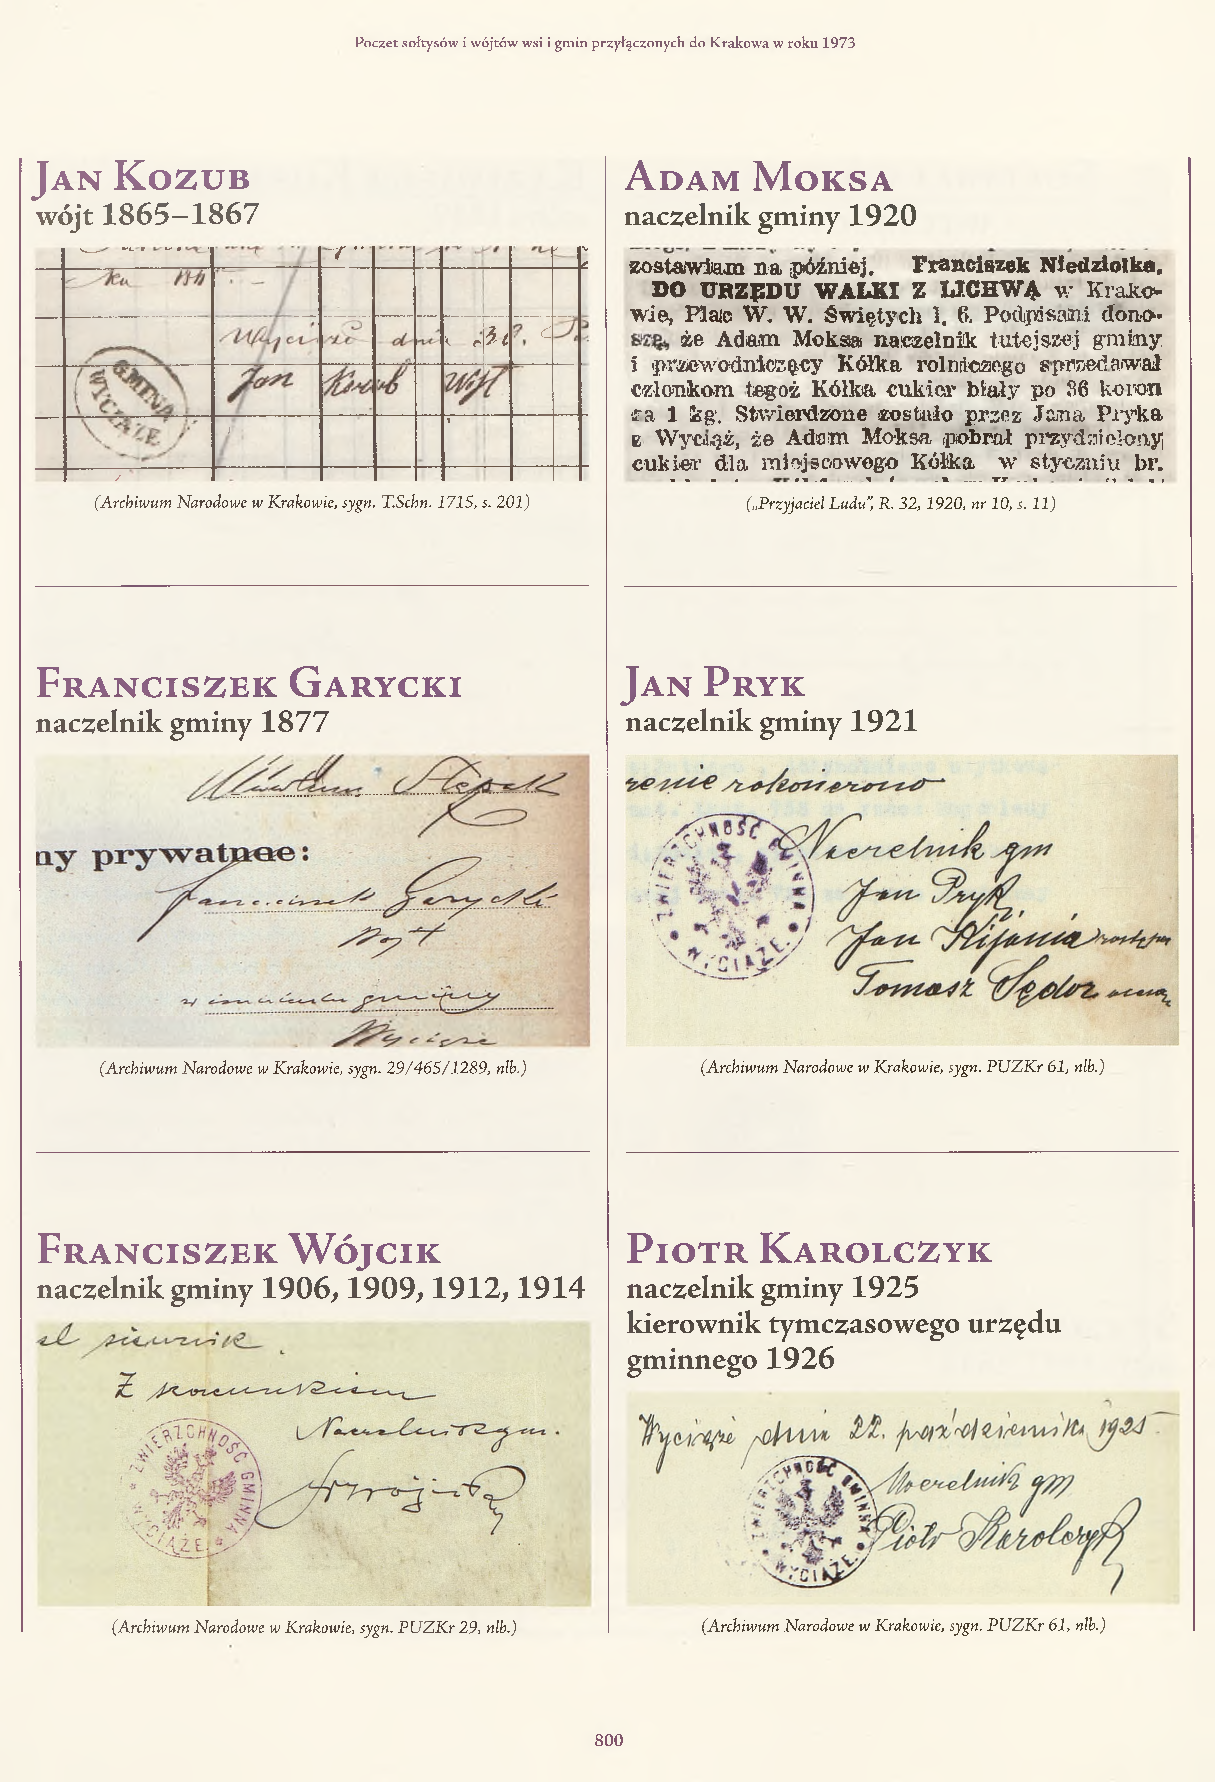 Poczet sołtysów i wójtów wsi i gmin przyłączonych do Krakowa w roku 1973
Jan Kozub
wójt 1865–1867
Wyciąże dnia 30.
Jan Kozub Wójt
GMINA
WYCIĄŻE
(Archiwum Narodowe w Krakowie, sygn. T.Schn. 1715, s. 201)
Franciszek Garycki
naczelnik gminy 1877
ny prywatnee:
Franciszek Garycki
Wójt
w imieniu gminy
Wyciąże
(Archiwum Narodowe w Krakowie, sygn. 29/465/1289, nlb.)
Franciszek Wójcik
naczelnik gminy 1906, 1909, 1912, 1914
Z szacunkiem
Naczelnik gm.
Fr Wójcik
ZWIERZCHNOŚĆ GMINNA
WYCIĄŻE
(Archiwum Narodowe w Krakowie, sygn. PUZKr 29, nlb.)
Adam Moksa
naczelnik gminy 1920
zostawiam na później. Franciszek Niedziołka.
DO URZĘDU WALKI Z LICHWĄ w Krako-
wie, Plac W. W. Świętych l. 6. Podpisani dono-
szę, że Adam Moksa naczelnik tutejszej gminy
i przewodniczący Kółka rolniczego sprzedawał
członkom tegoż Kółka cukier biały po 36 koron
za 1 kg. Stwierdzone zostało przez Jana Pryka
z Wyciąż, że Adam Moksa pobrał przydzielony
cukier dla miejscowego Kółka w styczniu br.
(„Przyjaciel Ludu”, R. 32, 1920, nr 10, s. 11)
Jan Pryk
naczelnik gminy 1921
Naczelnik gm
Jan Pryk
Jan Kijania
Tomasz Sędor
ZWIERZCHNOŚĆ GMINNA
WYCIĄŻE
(Archiwum Narodowe w Krakowie, sygn. PUZKr 61, nlb.)
Piotr Karolczyk
naczelnik gminy 1925
kierownik tymczasowego urzędu
gminnego 1926
Wyciąże dnia 22. października 1925
Naczelnik gm
Piotr Karolczyk
ZWIERZCHNOŚĆ GMINNA
WYCIĄŻE
(Archiwum Narodowe w Krakowie, sygn. PUZKr 61, nlb.)
800